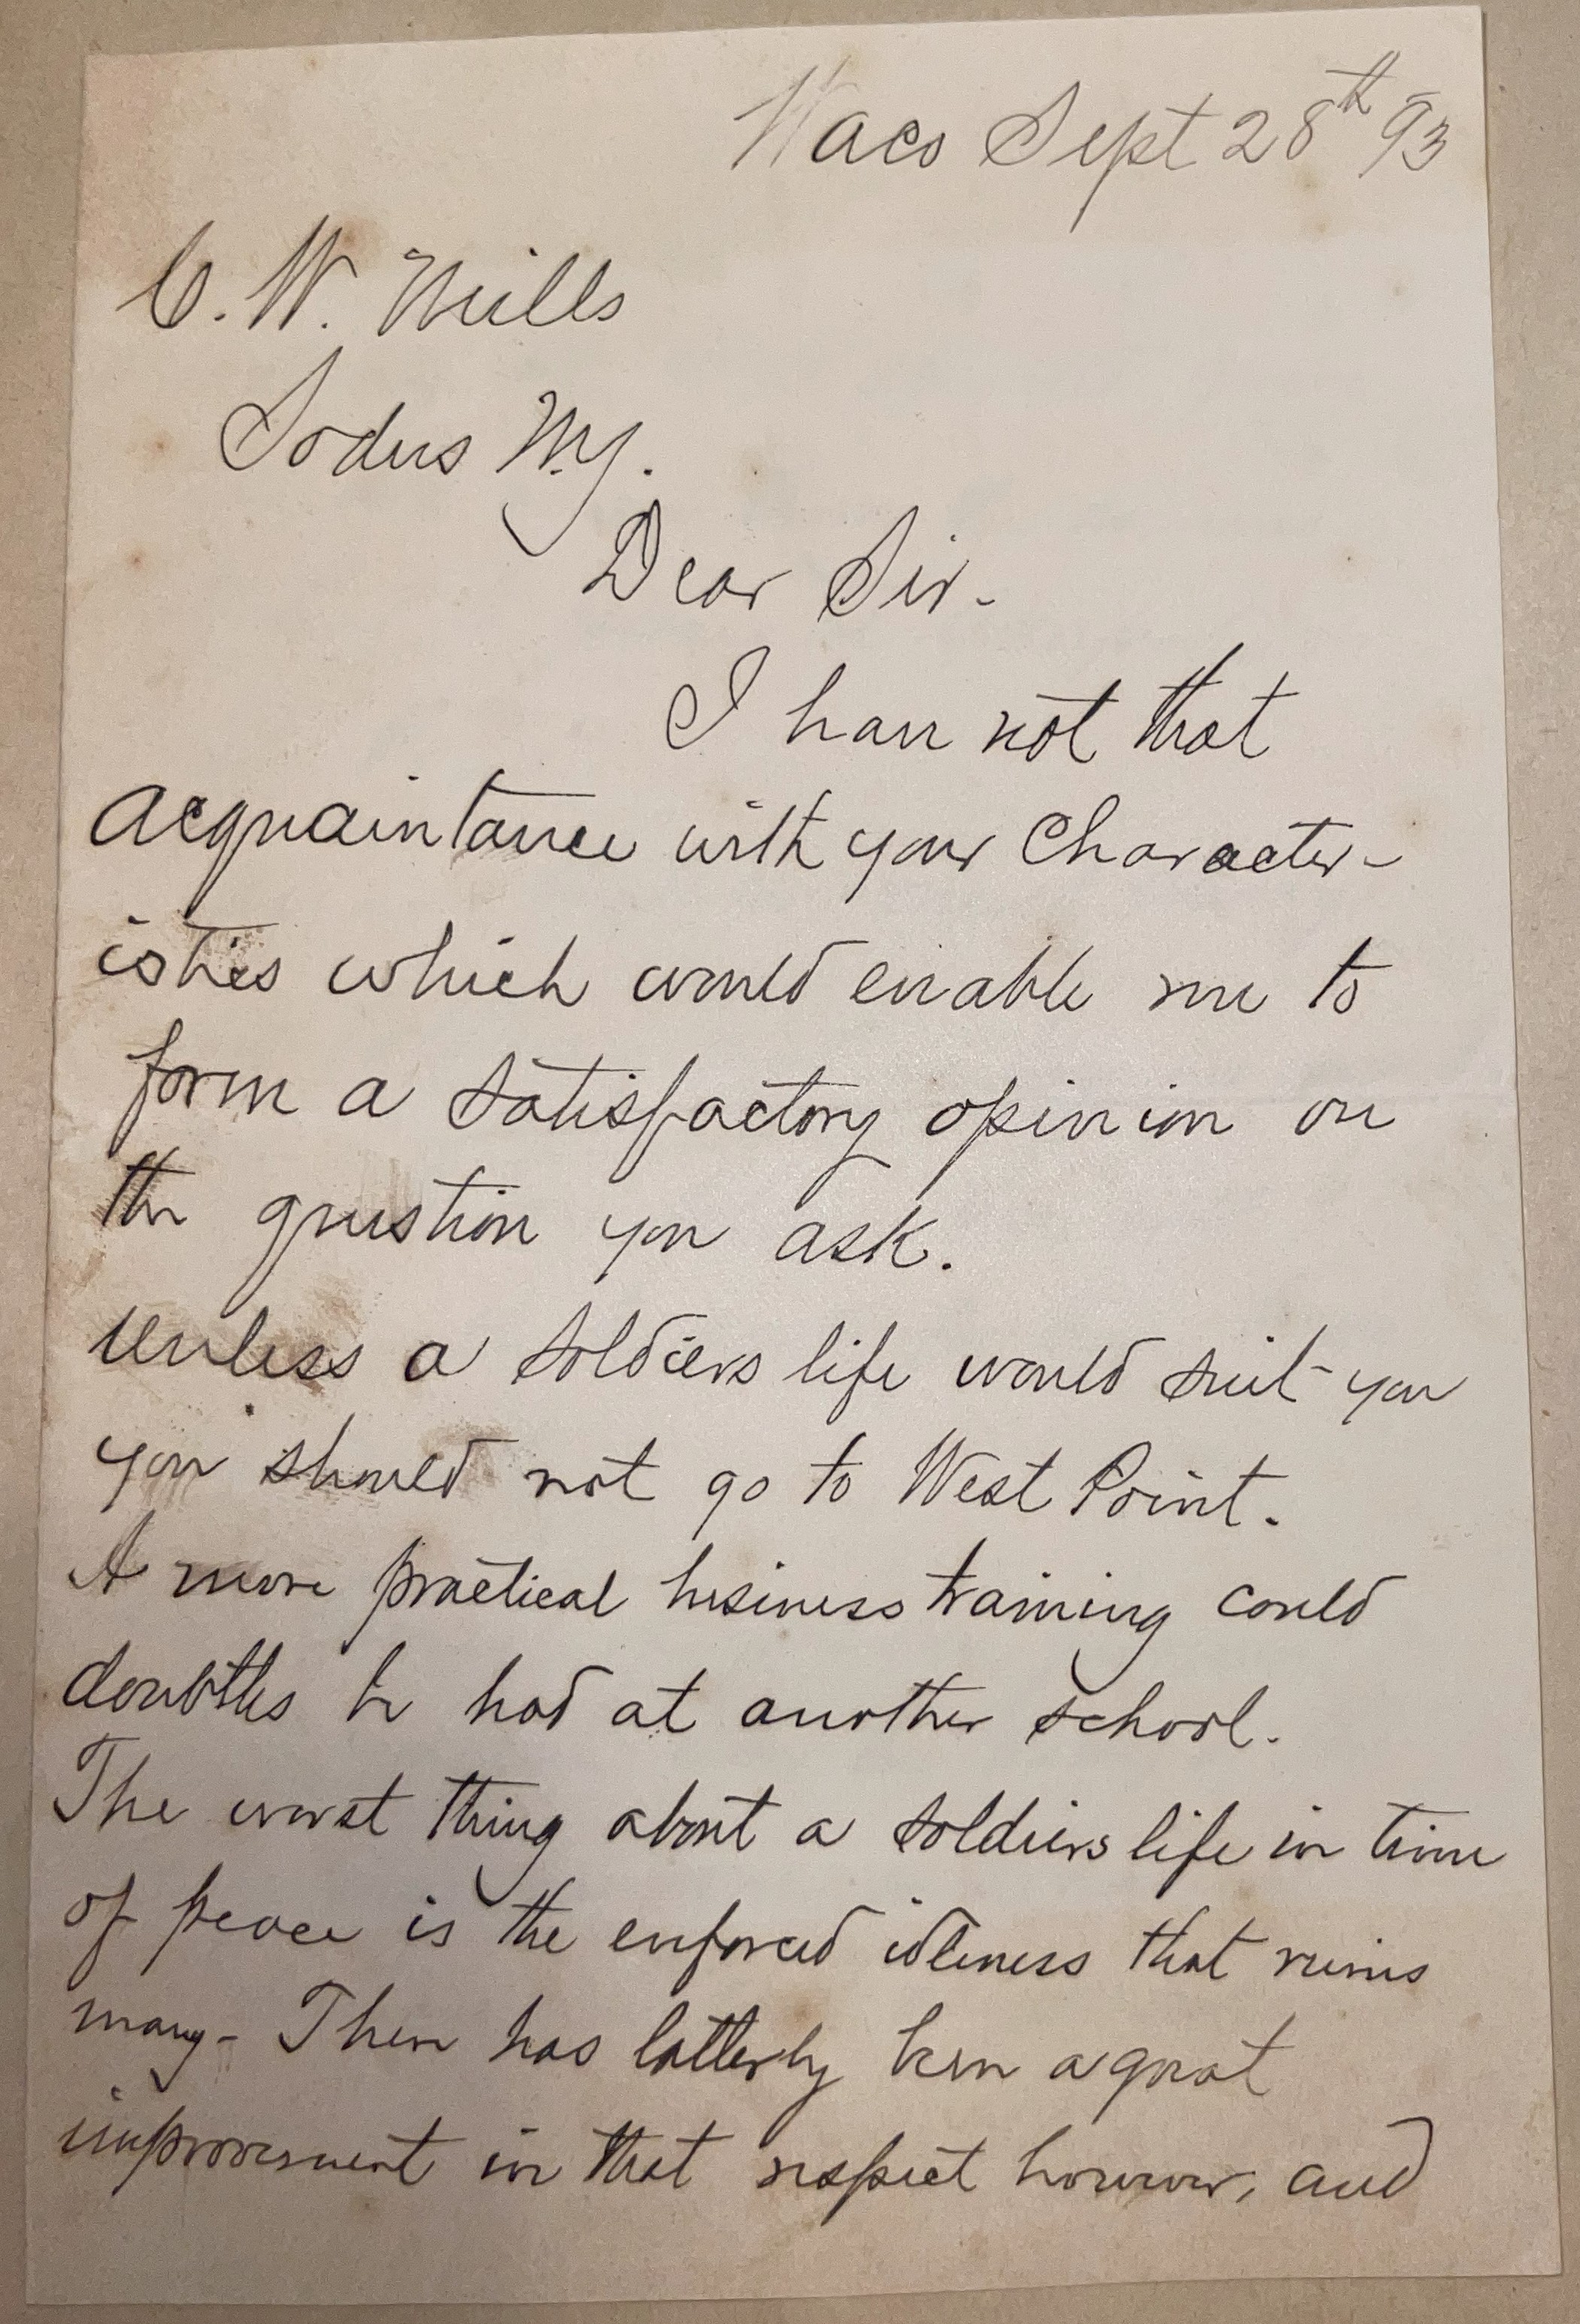 Waco Sept 28th 93
C. W. Mills
Sodus N.Y.
Dear Sir -
I have not that
acquaintance with your Character-
istics which would enable me to
form a satisfactory opinion on
the question you ask.
Unless a soldiers life would suit you
you should not go to West Point.
A more practical business training could
doubtles be had at another school.
The worst thing about a soldiers life in time
of peace is the enforced idleness that ruins
many - There has latterly been a great
improvement in that respect however, and